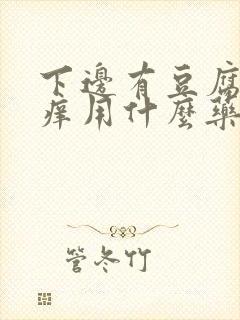 下邊有豆腐
痒用什麼藥
管冬竹